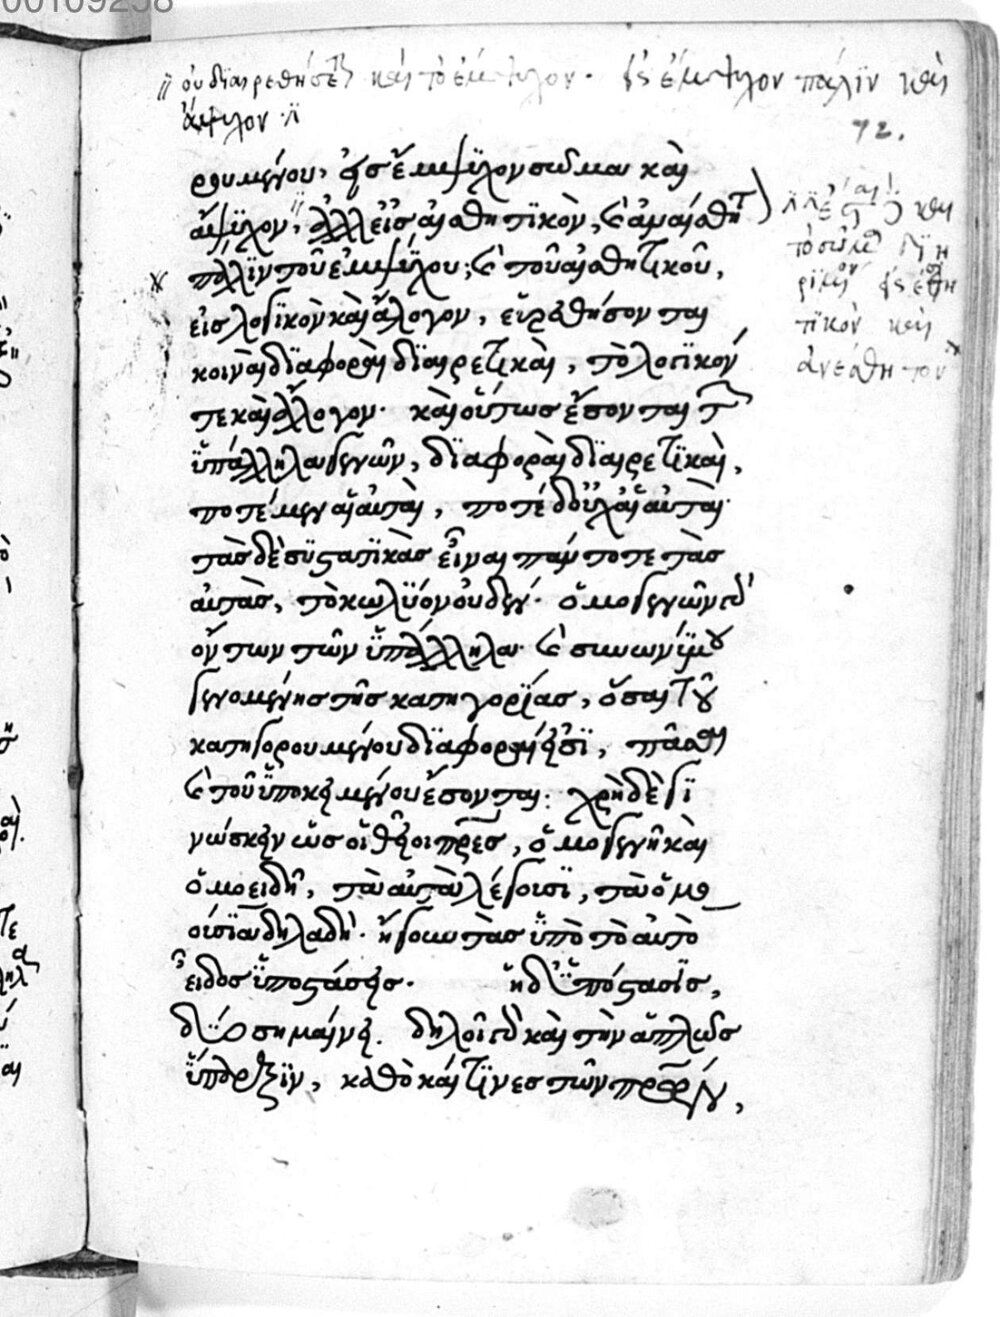 00109258
// οὐ διαιρεθήσεται καὶ τὸ ἔμψυχον · εἰς ἔμψυχον πάλιν καὶ
ἄψυχον ·//
72.
ρουμένου, εἰς ἔμψυχον σῶμα καὶ
ἄψυχον, ἀλλ' εἰς αἰσθητικὸν, καὶ ἀναίσθητον
πάλιν τοῦ ἐμψύχου, καὶ τοῦ αἰσθητικοῦ,
εἰς λογικὸν καὶ ἄλογον, εὑρεθήσονται
κοιναὶ διαφοραὶ διαιρετικαὶ, τὸ λογικόν
τε καὶ ἄλογον· καὶ οὕτως ἔσονται τῶν
ὑπάλληλα γενῶν, διαφοραὶ διαιρετικαὶ,
ποτὲ μὲν αἱ αὐταὶ, ποτὲ δ' οὐχ αἱ αὐταί·
τὰς δὲ συστατικὰς εἶναι πάντοτε τὰς
αὐτὰς, τὸ κωλύον οὐδέν· ὁμογενῶν δ'
ὄντων τῶν ὑπάλληλα· καὶ συνωνύμου
γενομένης τῆς κατηγορίας, ὅσαι τοῦ
κατηγορουμένου διαφοραί εἰσι, πᾶσαι
καὶ τοῦ ὑποκειμένου ἔσονται: χρὴ δὲ γι
νώσκειν ὡς οἱ θεῖοι πατέρες, ὁμογενῆ καὶ
ὁμοειδῆ, ταὐτὰ λέγουσι, τὰ ὁμο
ούσια δηλαδή· ἤγουν τὰς ὑπὸ τὸ αὐτὸ
εἶδος ὑποστάσεις· ἡ δὲ ὑπόστασις,
δύο σημαίνει. δηλοῖ δὲ καὶ τὴν ἁπλῶς
ὕπαρξιν, καθὸ καί τινες τῶν πατέρων,
καὶ
τὸ σῶμα
καὶ